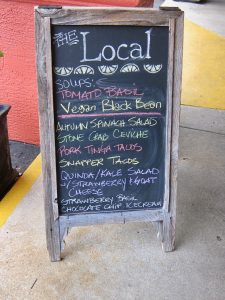 THE
Local
SOUPS:
TOMATO BASIL
Vegan Black Bean
AUTUMN SPINACH SALAD
STONE CRAB CEVICHE
PORK TINGA TACOS
SNAPPER TACOS
QUINOA/KALE SALAD
W/STRAWBERRY & GOAT
CHEESE
STRAWBERRY BASIL
CHOCOLATE CHIP ICECREAM